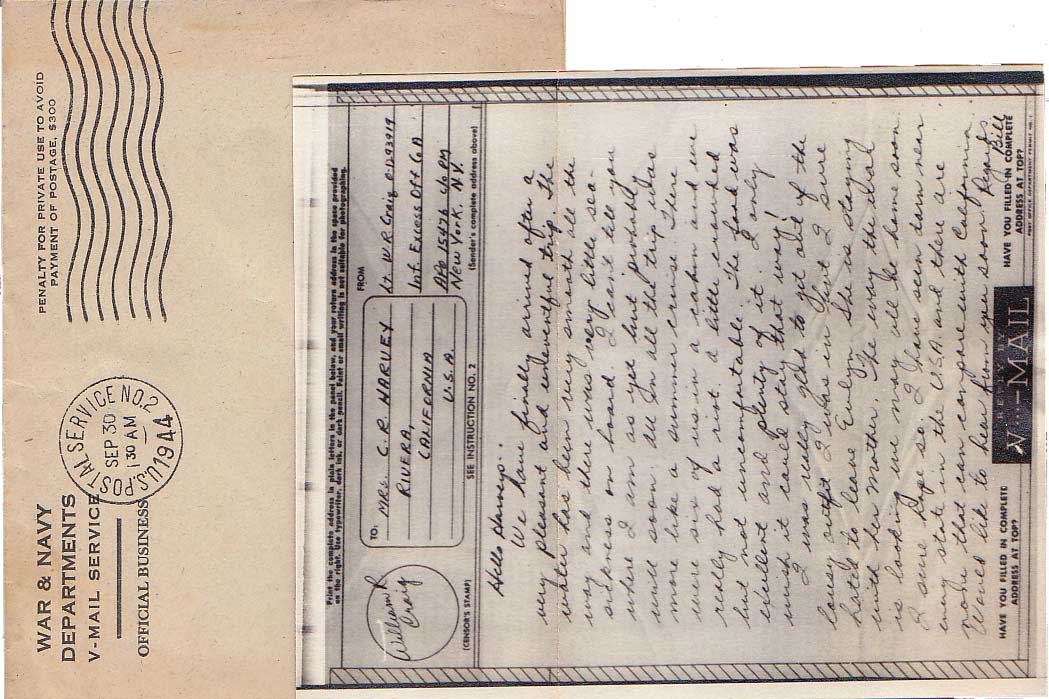 PENALTY FOR PRIVATE USE TO AVOID
PAYMENT OF POSTAGE, $300
WAR & NAVY
DEPARTMENTS
V-MAIL SERVICE
OFFICIAL BUSINESS
U.S. POSTAL SERVICE NO. 2
SEP 30
1 30 AM
1944
Print the complete address in plain letters in the panel below, and your return address in the space provided
on the right. Use typewriter, dark ink, or dark pencil. Faint or small writing is not suitable for photographing.
TO:
MRS. C. R. HARVEY
RIVERA,
CALIFORNIA
U.S.A.
FROM
Lt. W.R. Craig
Inf. Excess Off
APO 15476 c/o PM
New York. N.Y.
(Sender's complete address above)
SEE INSTRUCTION NO. 2
William R
Craig
(CENSOR'S STAMP)
Hello Harveys:
We have finally arrived after a
very pleasant and uneventful trip. The
water has been very smooth all the
way and there was very little sea-
sickness on board. I can't tell you
where I am as yet but probably
will soon. All in all the trip was
more like a summer cruise. There
were six of us in a cabin and we
really had a rest. a little crowded
but not uncomfortable. The food was
excellent and plenty of it. I only
wish it could stay that way!
I was really glad to get out of the
lousy outfit I was in but I sure
hated to leave Evelyn. She is staying
with her mother. The way the deal
is looking we may all be home soon.
I sure hope so. I have seen darn near
every state in the U.S.A. and there are
none that can compare with California.
Would like to hear from you soon. Regards
Bill
HAVE YOU FILLED IN COMPLETE
ADDRESS AT TOP?
V-MAIL
HAVE YOU FILLED IN COMPLETE
ADDRESS AT TOP?